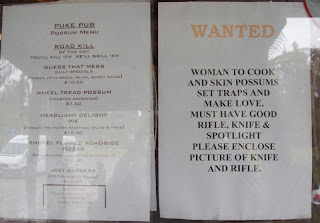 PUKE PUB
POSSUM MENU
ROAD KILL
OF THE DAY
YOU'LL KILL 'EM, WE'LL GRILL 'EM
GUESS THAT MESS
DAILY SPECIALS
$10.50
WHEEL TREAD POSSUM
HEADLIGHT DELIGHT
PIE
SHOVEL FLIPPED ROADSIDE
PIZZAS
JOEY BURGERS
WANTED
WOMAN TO COOK
AND SKIN POSSUMS
SET TRAPS AND
MAKE LOVE.
MUST HAVE GOOD
RIFLE, KNIFE &
SPOTLIGHT
PLEASE ENCLOSE
PICTURE OF KNIFE
AND RIFLE.